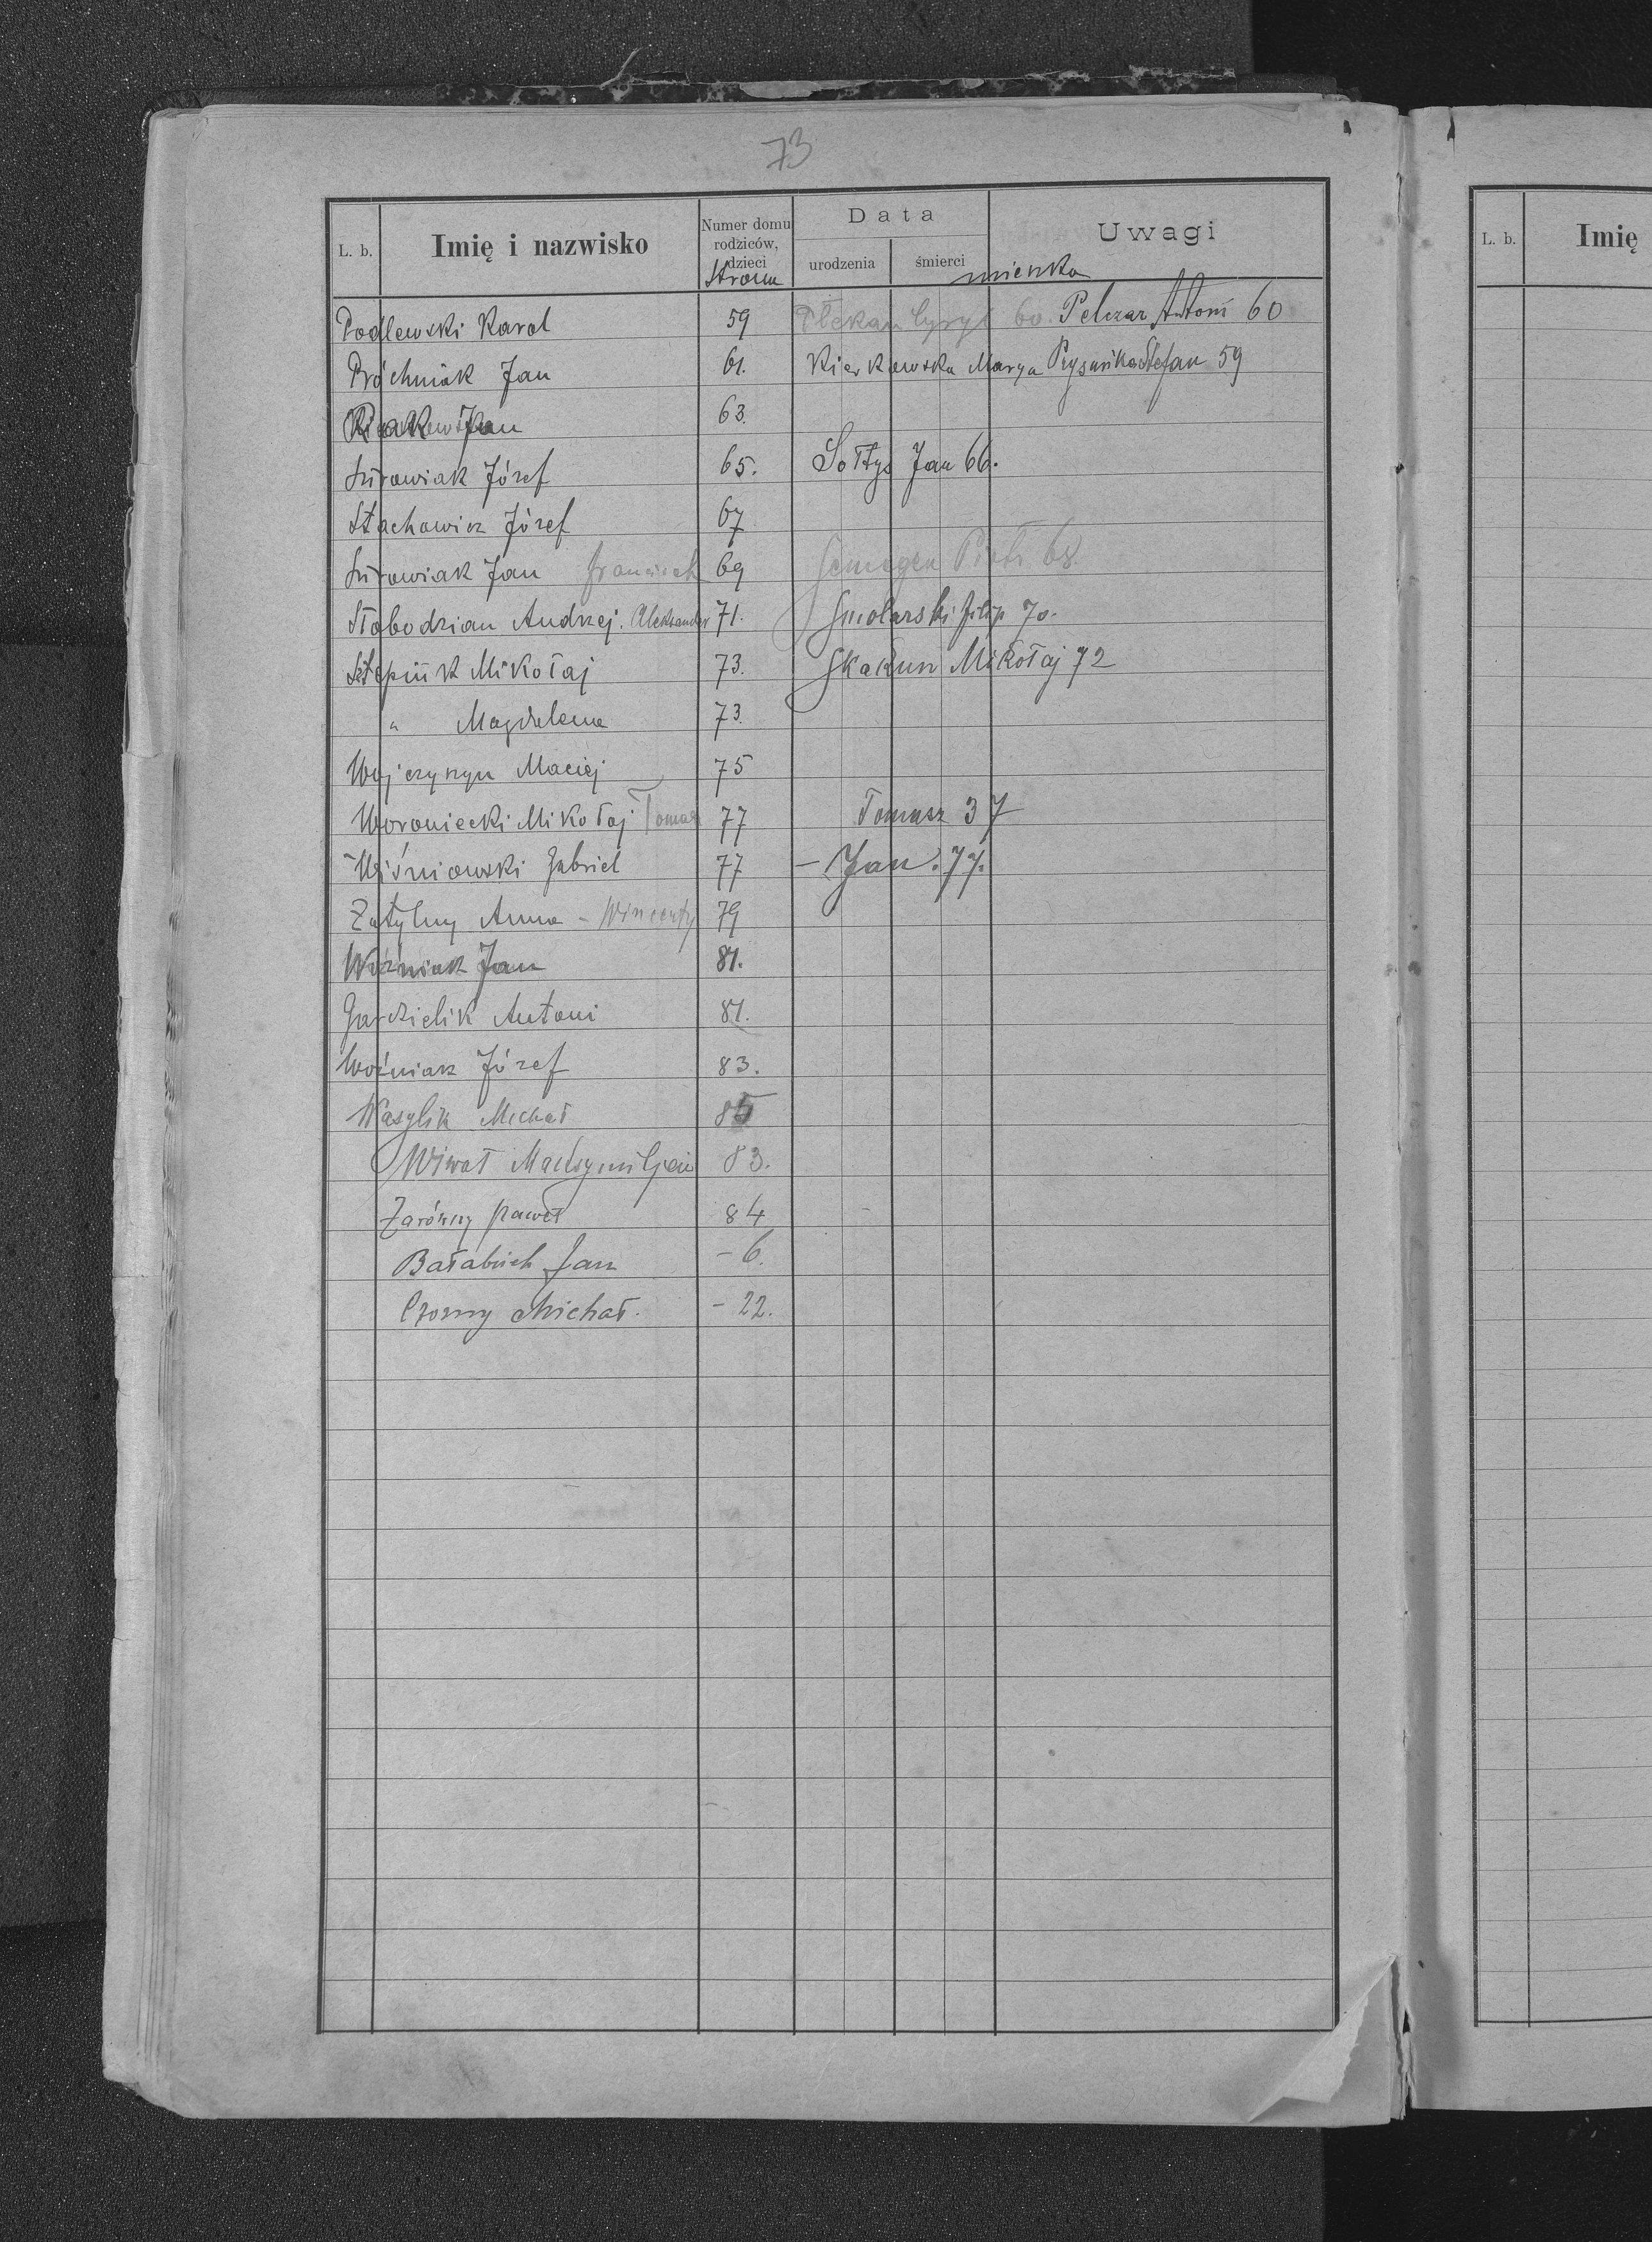 73
L. b. Imię i nazwisko Numer domu rodziców, dzieci Data urodzenia śmierci Uwagi
Strona
Podlewski Karol 59 Cyryl 60. Pelczar Antoni 60
Próchniak Jan 61. Kierkowska Marya Stefan 59
Jan 63.
Surowiak Józef 65. Sołtys Jan 66.
Stachowicz Józef 67
Surowiak Jan Franciszek 69 68.
Słobodzian Andrzej. Aleksander 71. Smolarski Filip 70.
Mikołaj 73. Skakun Mikołaj 72
" Magdalena 73.
Maciej 75
Woroniecki Mikołaj Tomasz 77 Tomasz 37
Wiśniowski Gabriel 77 – Jan. 77.
Zatylny Anna – Wincenty 79
Woźniak Jan 81.
Gardzielik Antoni 81.
Woźniak Józef 83.
Wasylik Michał 85
Wiwat 83.
Paweł 84
Bałabuch Jan – 6.
Czorny Michał. – 22.
L. b. Imię